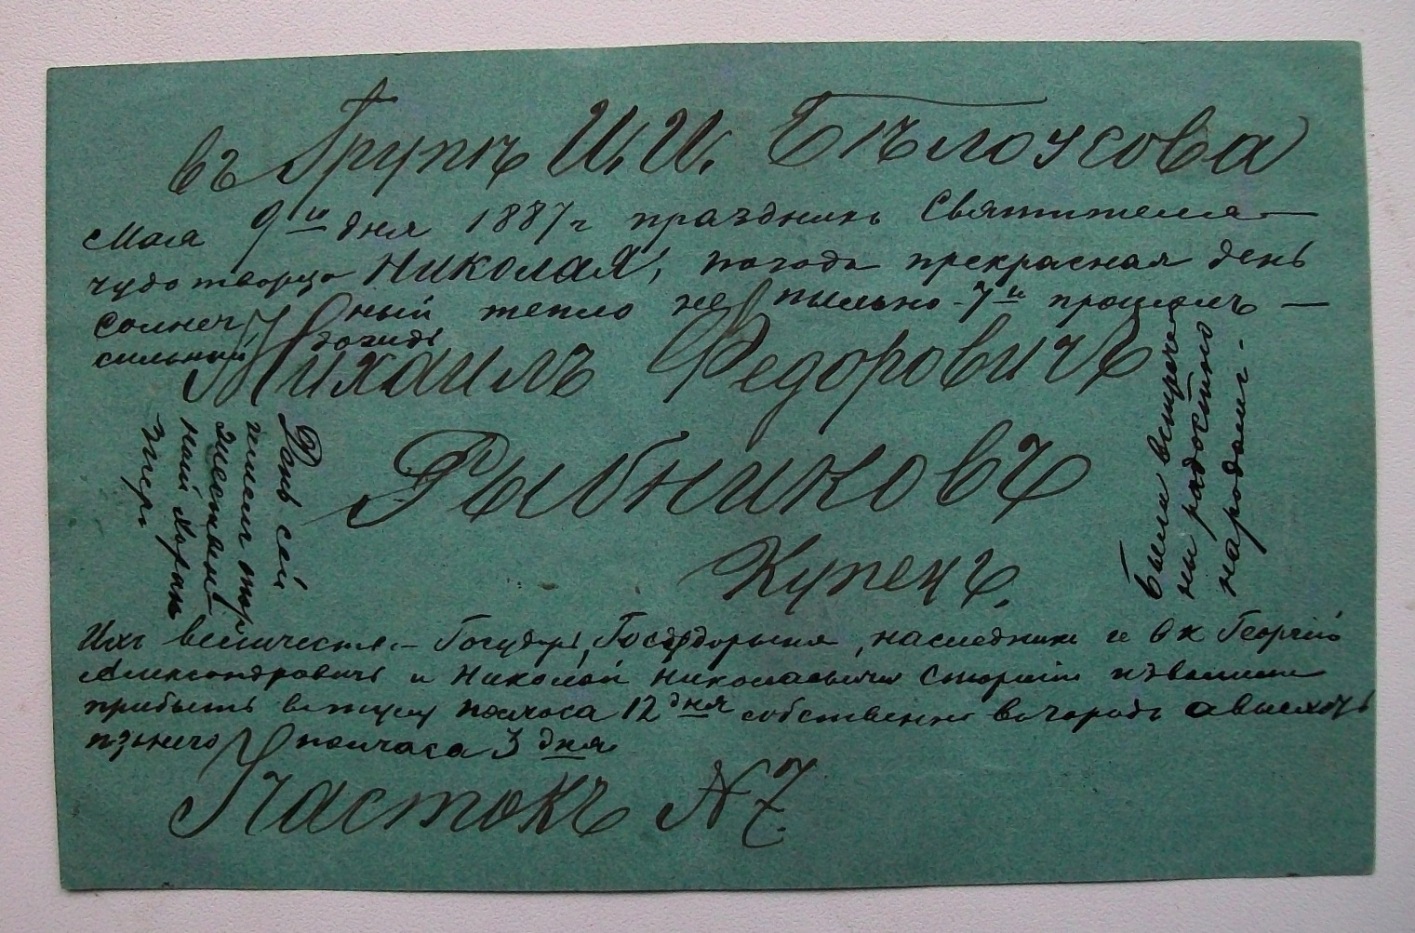 въ Групѣ И. И. Бѣлоусова
Мая 9го дня 1887г праздникъ Святителя
чудотворца Николая, погода прекрасная день
солнечный тепло не пыльно 7го прошолъ
сильный дождь
Михаилъ Федоровичъ
Рыбниковъ
Купецъ.
День сей
имѣлъ тор
жествен
ный
Были встрече
ны радостно
народомъ
Ихъ величества Государь, наследникъ и В К Георгий
Александровичъ и Николай Николаевичъ Старший изволили
прибыть 12 дня собственно в городъ а выехать
изънего получаса 3 дня
Участокъ N 7.